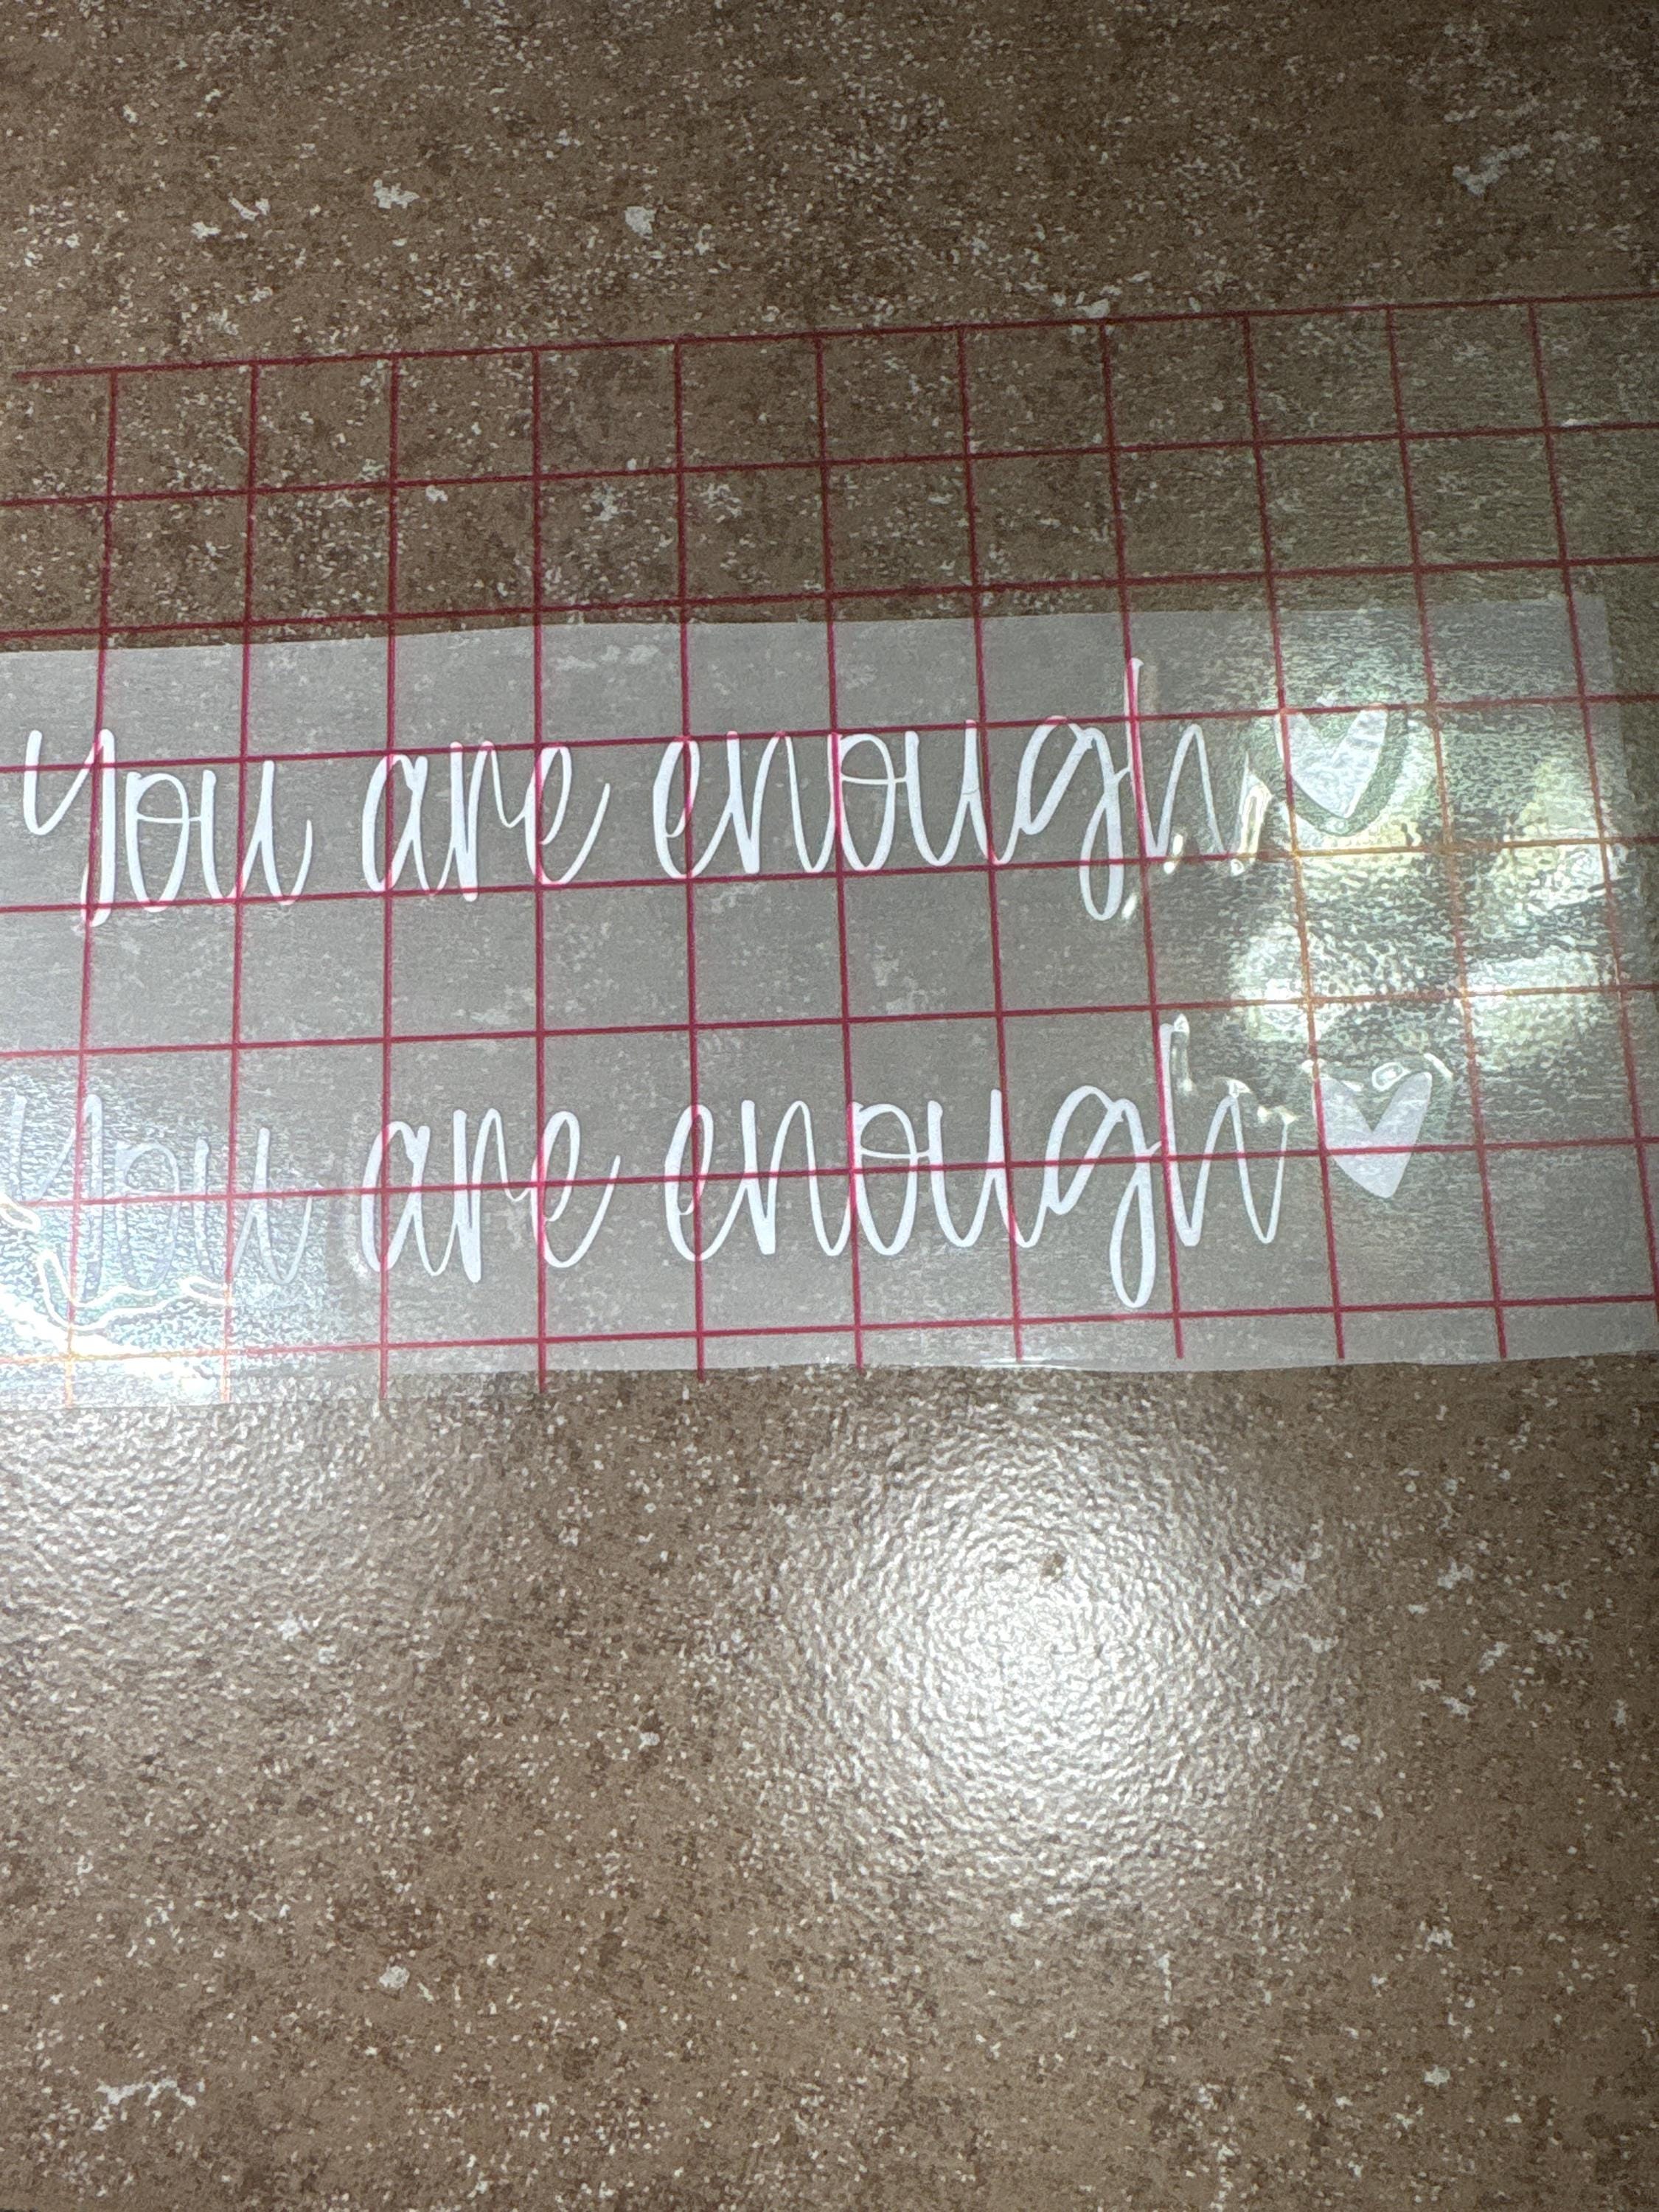 You are enough
You are enough